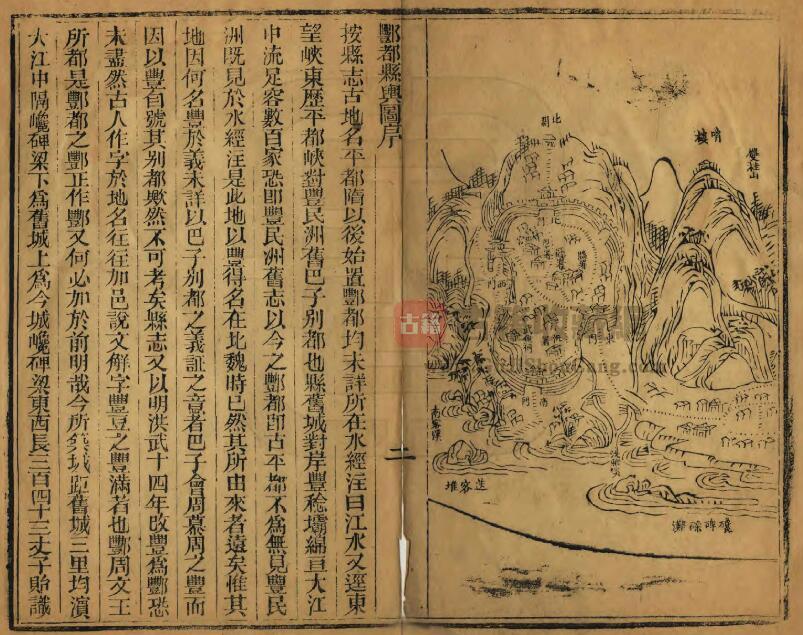 雙桂山
哨樓
北門
送客堆
酆都縣輿圖序
按縣志古地名平都隋以後始置酆都均未詳所在水經注曰江水又逕東
望峽東歷平都峽對豐民洲舊巴子別都也縣舊城對岸豐稔壩綿亘大江
中流足容數百家恐即豐民洲舊志以今之酆都即古平都不為無見豐民
洲既見於水經注是此地以豐得名在北魏時已然其所由來者遠矣惟其
地因何名豐於義未詳以巴子別都之義証之意者巴子會周慕周之豐而
因以豐自號其別都歟然不可考矣縣志又以明洪武十四年改豐為酆恐
未盡然古人作字於地名往往加邑說文解字豐豆之豐滿者也酆周文王
所都是酆都之酆正作酆又何必加於前明哉今所築城距舊城三里均濱
大江中隔巉碑梁下為舊城上為今城巉碑梁東西長二百四十三丈予貽識
二
古籍